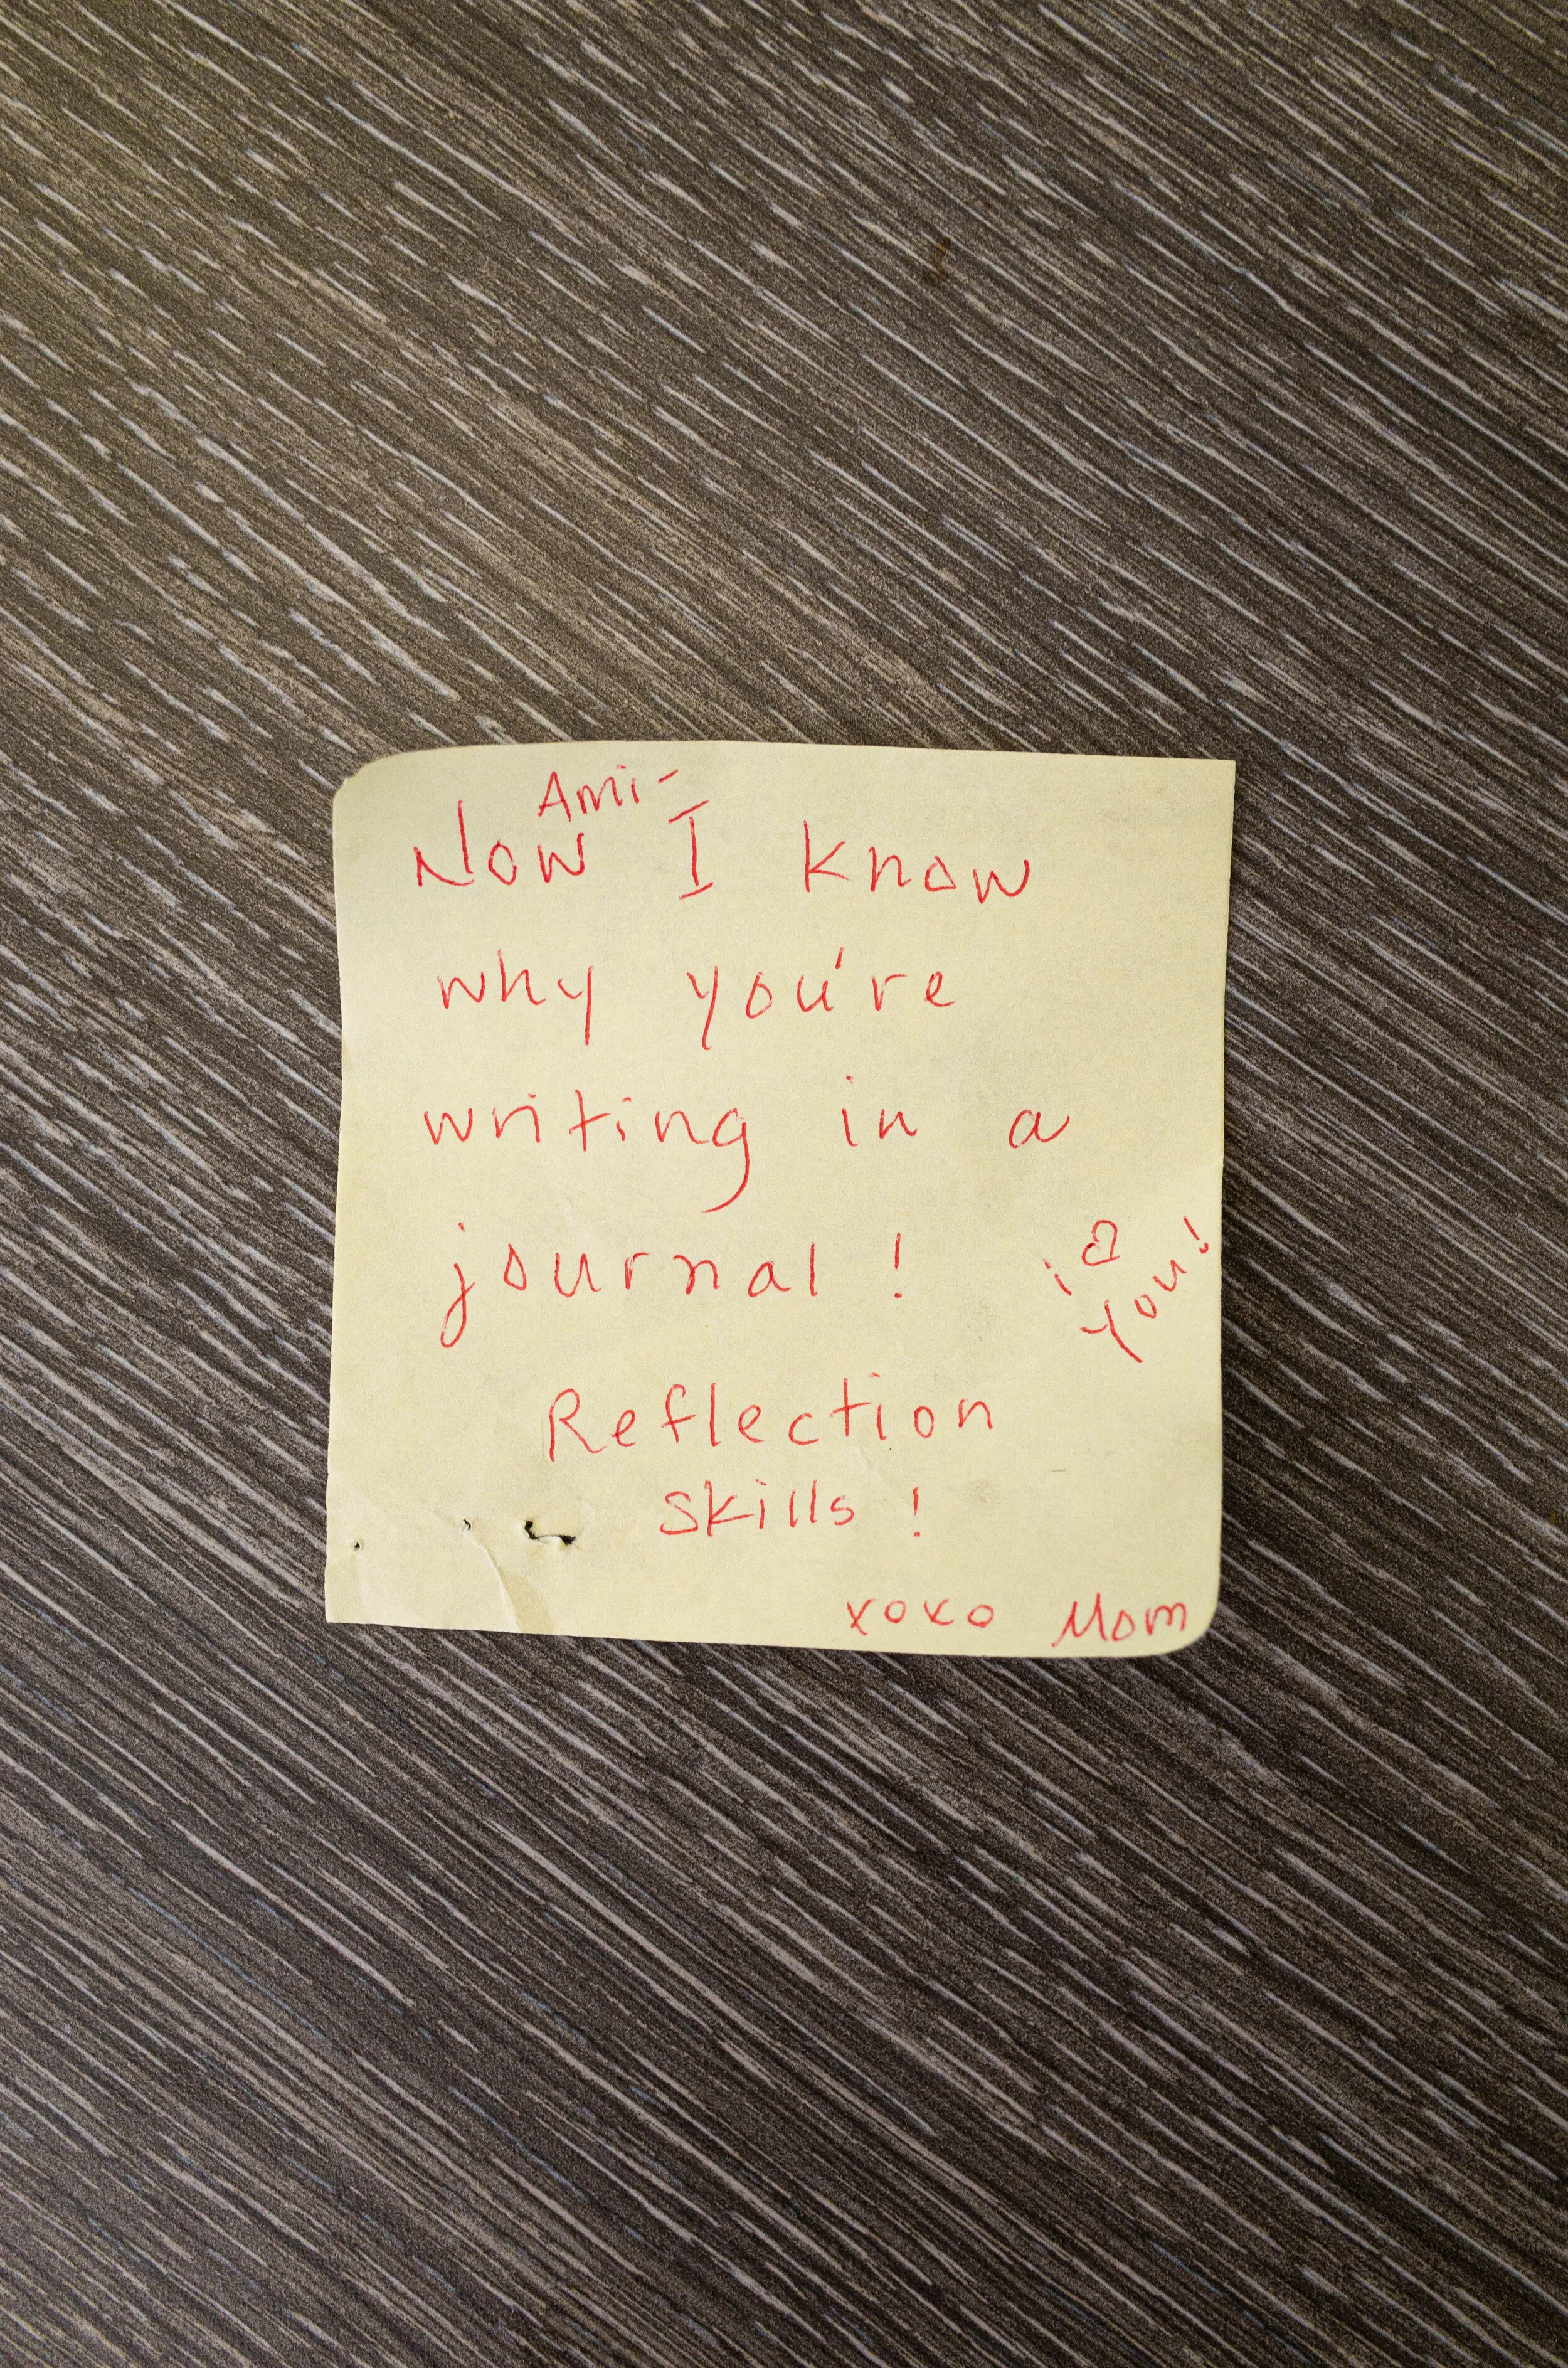 Ami-
Now I know
why you're
writing in a
journal !
i ♡
you!
Reflection
skills !
xoxo Mom